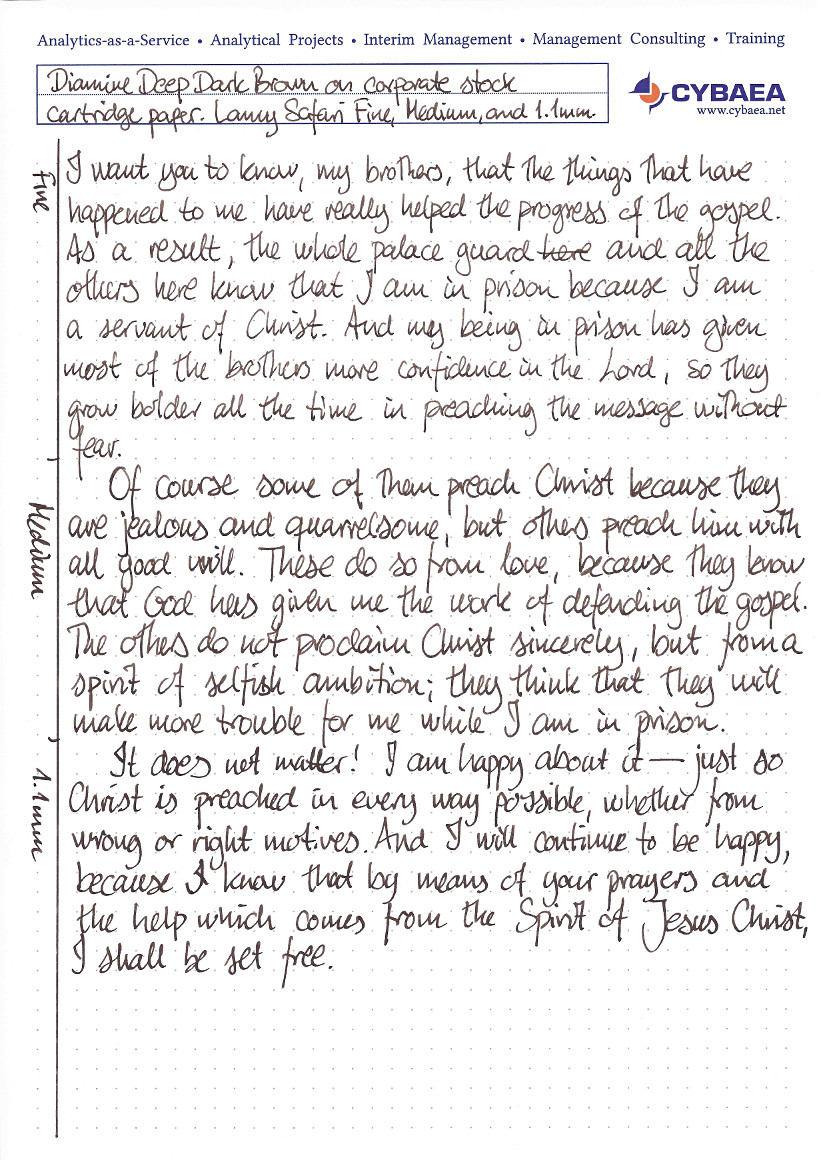 Analytics-as-a-Service • Analytical Projects • Interim Management • Management Consulting • Training
Diamine Deep Dark Brown on corporate stock
cartridge paper. Lamy Safari Fine, Medium, and 1.1mm.
CYBAEA
www.cybaea.net
Fine
I want you to know, my brothers, that the things that have
happened to me have really helped the progress of the gospel.
As a result, the whole palace guard here and all the
others here know that I am in prison because I am
a servant of Christ. And my being in prison has given
most of the brothers more confidence in the Lord, so they
grow bolder all the time in preaching the message without
fear.
Medium
Of course some of them preach Christ because they
are jealous and quarrelsome, but others preach him with
all good will. These do so from love, because they know
that God has given me the work of defending the gospel.
The others do not proclaim Christ sincerely, but from a
spirit of selfish ambition; they think that they will
make more trouble for me while I am in prison.
1.1mm
It does not matter! I am happy about it — just so
Christ is preached in every way possible, whether from
wrong or right motives. And I will continue to be happy,
because I know that by means of your prayers and
the help which comes from the Spirit of Jesus Christ,
I shall be set free.